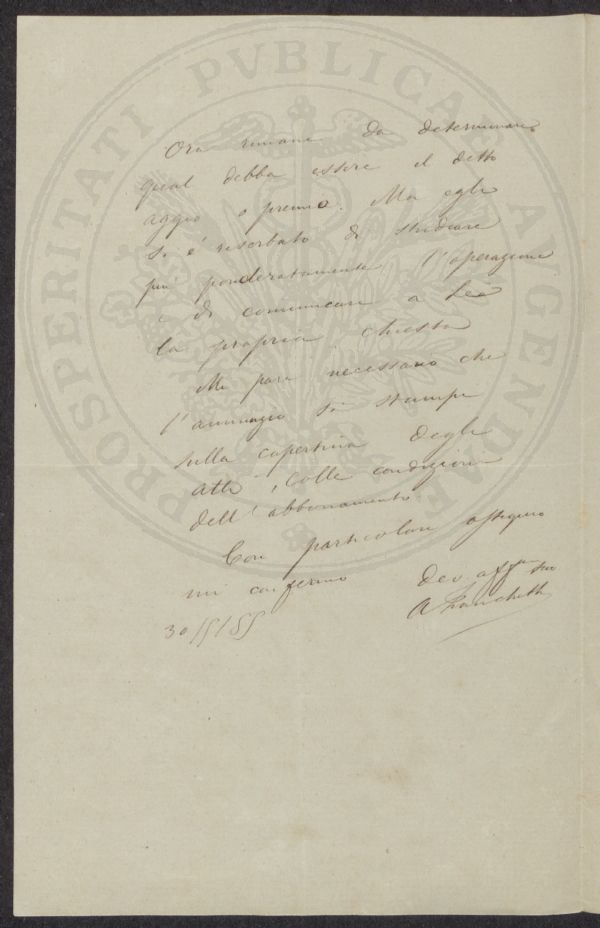 PROSPERITATI PVBLICAE AVGENDAE
Ora rimane da determinare
qual debba essere il detto
aggio o premio. Ma egli
si è riserbato di studiare
più ponderatamente l'operazione
e di comunicare a Lei
la propria chiesta
Mi pare necessario che
l'annunzio si stampi
sulla copertina degli
atti, colle condizioni
dell'abbonamento.
Con particolare ossequio
mi confermo Dev. aff.mo suo
A
30/5/